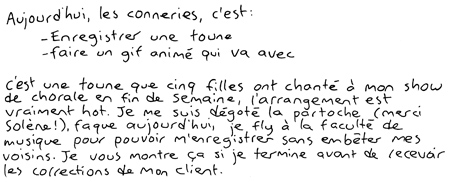 Aujourd'hui, les conneries, c'est:
-Enregistrer une toune
-faire un gif animé qui va avec
c'est une toune que cinq filles ont chanté à mon show
de chorale en fin de semaine, l'arrangement est
vraiment hot. Je me suis dégoté la partoche (merci
Solène!), faque aujourd'hui, je fly à la faculté de
musique pour pouvoir m'enregistrer sans embêter mes
voisins. Je vous montre ça si je termine avant de recevoir
les corrections de mon client.